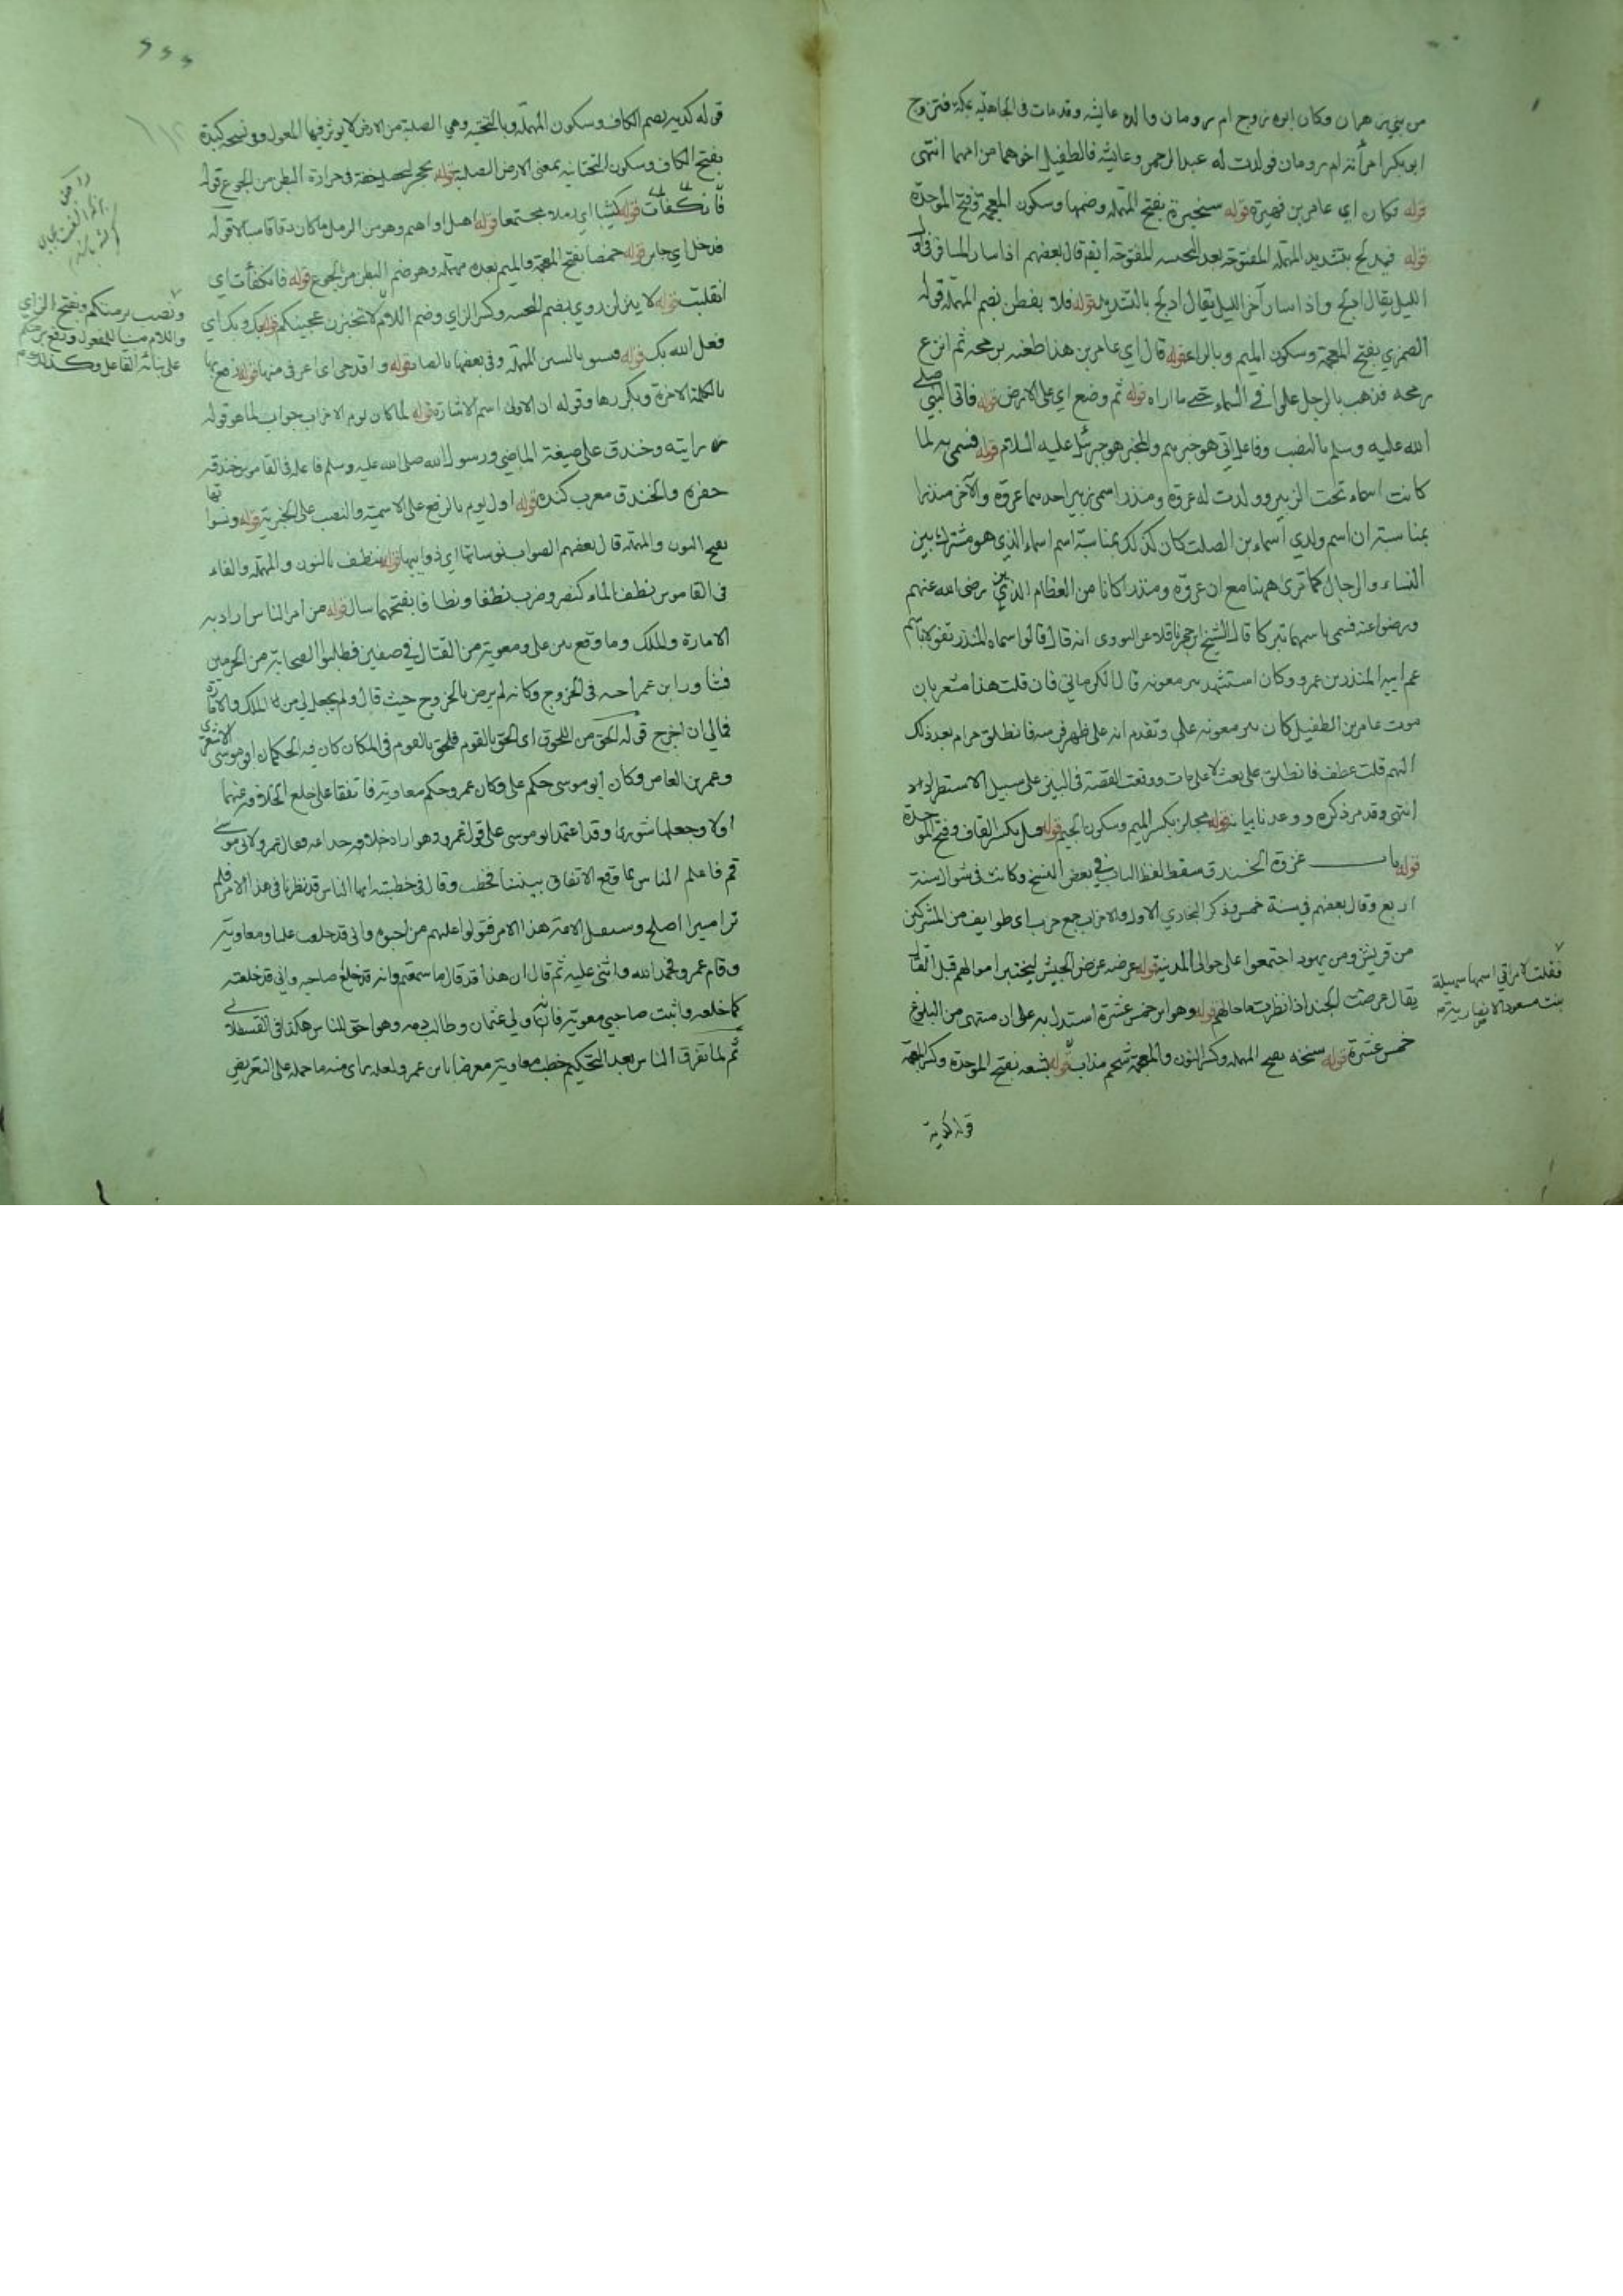 من بني زهران وكان ابوه زوج ام رومان والده عايشه وقد مات في الجاهلية بمكة فتزوج
ابو بكر امرأته ام رومان فولدت له عبد الرحمن وعايشة فالطفيل اخوهما من امهما انتهى
قوله فكان اي عامر بن فهيرة قوله سخبرة بفتح المهمله وضمها وسكون المعجمة وفتح الموحدة
قوله فيدلج بتشديد المهمله المفتوحة بعد المفتوحة قال بعضهم اذا سار المسافر في اول
الليل يقال ادلج واذا سار آخر الليل يقال ادلج بالتشديد قوله فلا يفطن بضم المهمله قوله
الضمري بفتح المعجمة وسكون الميم وبالراء قوله قال اي عامر بن هذا طعنه برمحه ثم انزع
رمحه فذهب بالرجل علوا في السماء حتى ما اراه قوله ثم وضع اي على الارض قوله فاتى النبي صلى
الله عليه وسلم بالنصب وفاعل اتى هو خبرهم والمخبر هو جبرئيل عليه السلام قوله فسمى به لما
كانت اسماء تحت الزبير وولدت له عروة ومنذر اسمى زبير احدهما عروة والآخر منذرا
بمناسبة ان اسم ولدي اسماء بن الصلت كان كذلك بمناسبة اسم اسماء الذي هو مشترك بين
النساء والرجال كما ترى ههنا مع ان عروة ومنذرا كانا من العظام الذين رضي الله عنهم
ورضوا عنه فسمى باسمهما تبركا قال الشيخ ابن حجر ناقلا عن النووي انه قال قالوا سماه المنذر تفؤلا باسم
عم ابيه المنذر بن عمرو وكان استشهد ببر معونه قال الكرماني فان قلت هذا مشعر بان
موت عامر بن الطفيل كان ببر معونه وتقدم انه على ظهر فرسه فانطلق حرام بعد ذلك
اليهم قلت عطف فانطلق على بعث لا على مات ووقعت القصة في البين على سبيل الاستطراد
انتهى وقد مر ذكره ووعدنا بيانه قوله مجلز بكسر الميم وسكون الجيم قوله قبل بكسر القاف وفتح الموحدة
قوله باب غزوة الخندق سقط لفظ الباب في بعض النسخ وكانت في شوال سنة
اربع وقال بعضهم في سنة خمس وذكر البخاري الاول والاحزاب جمع حزب اي طوايف من المشركين
من قريش ومن يهود اجتمعوا على حوالى المدينة قوله عرضه عرض الجيش ليختبر احوالهم قبل القتال
يقال عرضت الجند اذا نظرت ما حالهم قوله وهو ابن خمس عشرة استدل به على ان منتهى من البلوغ
خمس عشرة قوله سنخه بفتح المهمله وكسر النون والمعجمة شحم مذاب قوله بشعه بفتح الموحدة وكسر المعجمة
قوله كدية
فقلت لامراتي اسمها سهيلة
بنت مسعود الانصارية
قوله كدية بضم الكاف وسكون المهمله وبالتحتيه وهي الصلبة من الارض لا يوثر فيها المعول وفي نسخه كيدة
بفتح الكاف وسكون التحتانيه بمعنى الارض الصلبة قوله بحجر ليحصل خفة في حرارة البطن من الجوع قوله
فانكفأت قوله كثيبا اي رملا مجتمعا قوله اهيل او اهيم وهو من الرمل ما كان دقاقا سيالا قوله
فدخل اي جابر قوله خمصا بفتح المعجمة والميم بعده مهمله وهو ضم البطن من الجوع قوله فانكفأت اي
انقلبت قوله لا ينزلن روي بضم وكسر الزاي وضم اللام لا تخبزن عجينكم قوله بك وبك اي
فعل الله بك قوله فبسق بالسين المهمله وفي بعضها بالصاد قوله واقدحي اي اغرفي منها قوله
بالكلمة الاخرة ويكررها وقوله ان الاولى اسم الاشارة قوله لما كان يوم الاحزاب جواب لما هو قوله
رايته وخندق على صيغة الماضي ورسول الله صلى الله عليه وسلم فاعله في القاموس خندقه
حفره والخندق معرب كنده قوله اول يوم بالرفع على الاسمية والنصب على الخبرية قوله ونسواتها
بفتح النون والمهمله قال بعضهم الصواب نوساتها اي ذوايبها قوله ينطف بالنون والمهمله والفاء
في القاموس نطف الماء كنصر وضرب نطفا ونطافا بفتحهما سال قوله من امر الناس اراد به
الامارة والملك وما وقع بين علي ومعوية من القتال في صفين فطلبوا الصحابة من الحرمين
فشاور ابن عمر اخته في الخروج وكانه لم يرض بالخروج حيث قال ولم يجعل لي من الملك والامارة
فمالي ان اخرج قوله الحق من اللحوق اي الحق بالقوم فلحق بالقوم في المكان كان فيه الحكمان ابو موسى الاشعري
وعمر بن العاص وكان ابو موسى حكم علي وكان عمرو حكم معاوية فاتفقا على خلع الخلافة عنهما
اولا وجعلها شورى وقد اعتمد ابو موسى على قول عمرو وهو اراد خلافه خداعه فقال عمرو لابي موسى
قم فاعلم الناس بما وقع الاتفاق بيننا فخطب وقال في خطبته ايها الناس قد نظرنا في هذا الامر فلم
نر امرا اصلح وسنقبل الامة هذا الامر فتولوا عليهم من احبوه واني قد خلعت عليا ومعاوية
وقام عمرو فحمد الله واثنى عليه ثم قال ان هذا قد قال ما سمعتم وانه قد خلع صاحبه واني قد خلعته
كما خلعه واثبت صاحبي معوية فانه ولي عثمان وطالب دمه وهو احق الناس هكذا في القسطلاني
ثم لما تفرق الناس بعد التحكيم خطب معاوية معرضا بابن عمر ولعله رأى منه ما حمله على التعريض
ونصب برمتكم وبفتح الزاي
واللام مبنيا للمفعول ورفع برمتكم
على نيابة الفاعل وكذلك